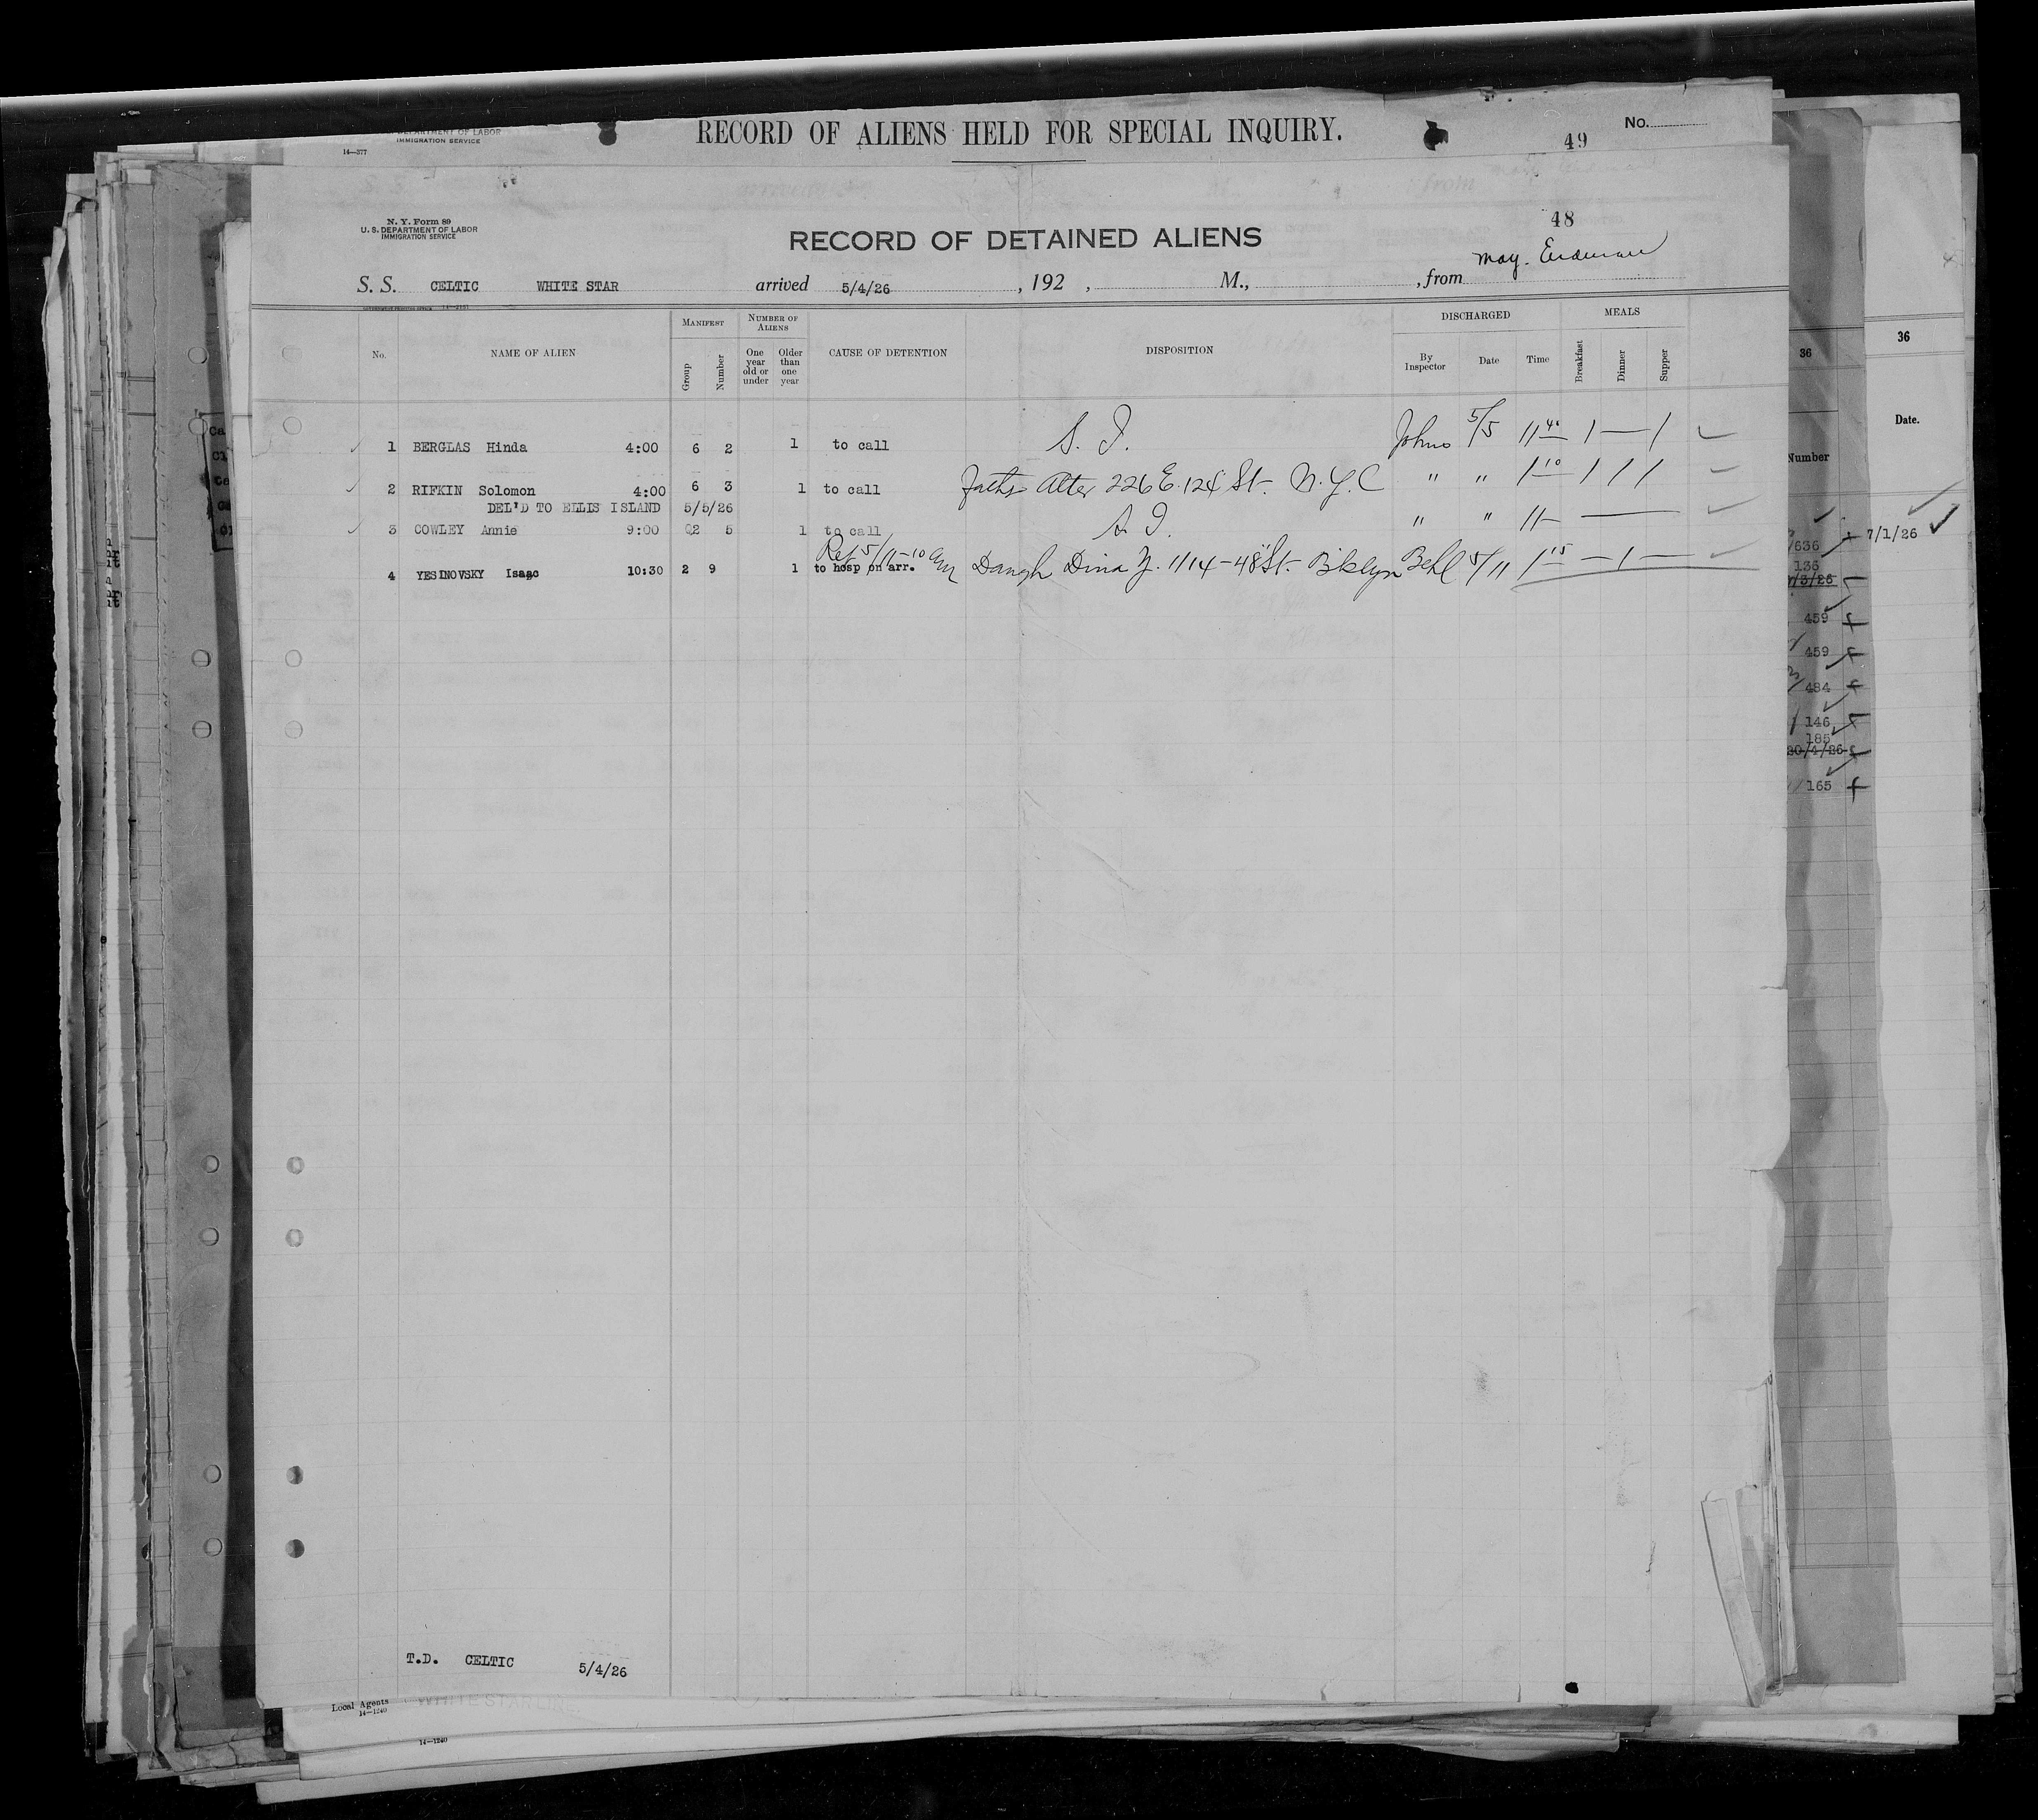 DEPARTMENT OF LABOR
IMMIGRATION SERVICE
14—377
RECORD OF ALIENS HELD FOR SPECIAL INQUIRY.
49
No.
N. Y. Form 89
U. S. DEPARTMENT OF LABOR
IMMIGRATION SERVICE
48
RECORD OF DETAINED ALIENS
S. S. CELTIC WHITE STAR arrived 5/4/26, 192 , M., , from May.
No. NAME OF ALIEN MANIFEST Group Number NUMBER OF ALIENS One year old or under Older than one year CAUSE OF DETENTION DISPOSITION DISCHARGED By Inspector Date Time MEALS Breakfast Dinner Supper
1 BERGLAS Hinda 4:00 6 2 1 to call S. I. Johns 5/5 11 40 1 — 1
2 RIFKIN Solomon 4:00 6 3 1 to call Alter 226 E. 124 St. N.Y.C " " 1 10 1 1 1
DEL'D TO ELLIS ISLAND 5/5/26
3 COWLEY Annie 9:00 2 5 1 to call S. I. " " 11— —
Rel 5/11—10 am
4 YESINOVSKY Isaac 10:30 2 9 1 to hosp on arr. Daugh Dina Y. 1114—48 St. Bklyn 5/11 1 15 — 1 —
T.D. CELTIC 5/4/26
Local Agents
14—1240
WHITE STAR LINE
14—1240
36
Number
/636
136
459
459
484
146
185
20/4/26
165
36
Date.
7/1/26